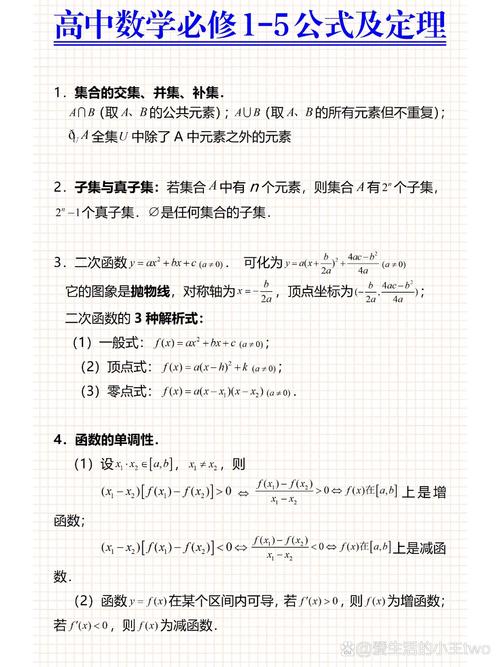 高中数学必修1-5公式及定理
1．集合的交集、并集、补集．
A∩B（取 A、B 的公共元素）；A∪B（取 A、B 的所有元素但不重复）；
∁_U A 全集 U 中除了 A 中元素之外的元素
2．子集与真子集：若集合 A 中有 n 个元素，则集合 A 有 2^n 个子集，
2^n−1 个真子集．∅是任何集合的子集．
3．二次函数 y=ax²+bx+c (a≠0)． 可化为 y=a(x+b/2a)²+(4ac−b²)/4a (a≠0)
它的图象是抛物线，对称轴为 x=−b/2a，顶点坐标为(−b/2a,(4ac−b²)/4a)；
二次函数的 3 种解析式：
（1）一般式：f(x)=ax²+bx+c (a≠0)；
（2）顶点式：f(x)=a(x−h)²+k (a≠0)；
（3）零点式：f(x)=a(x−x₁)(x−x₂) (a≠0)．
4．函数的单调性．
（1）设 x₁·x₂∈[a,b]，x₁≠x₂，则
(x₁−x₂)[f(x₁)−f(x₂)]>0 ⇔ (f(x₁)−f(x₂))/(x₁−x₂)>0⇔f(x)在[a,b] 上是增
函数；
(x₁−x₂)[f(x₁)−f(x₂)]<0⇔(f(x₁)−f(x₂))/(x₁−x₂)<0⇔f(x)在[a,b]上是减函
数．
（2）函数 y=f(x)在某个区间内可导，若 f′(x)>0，则 f(x)为增函数；
若 f′(x)<0，则 f(x)为减函数．
@爱生活的小王two